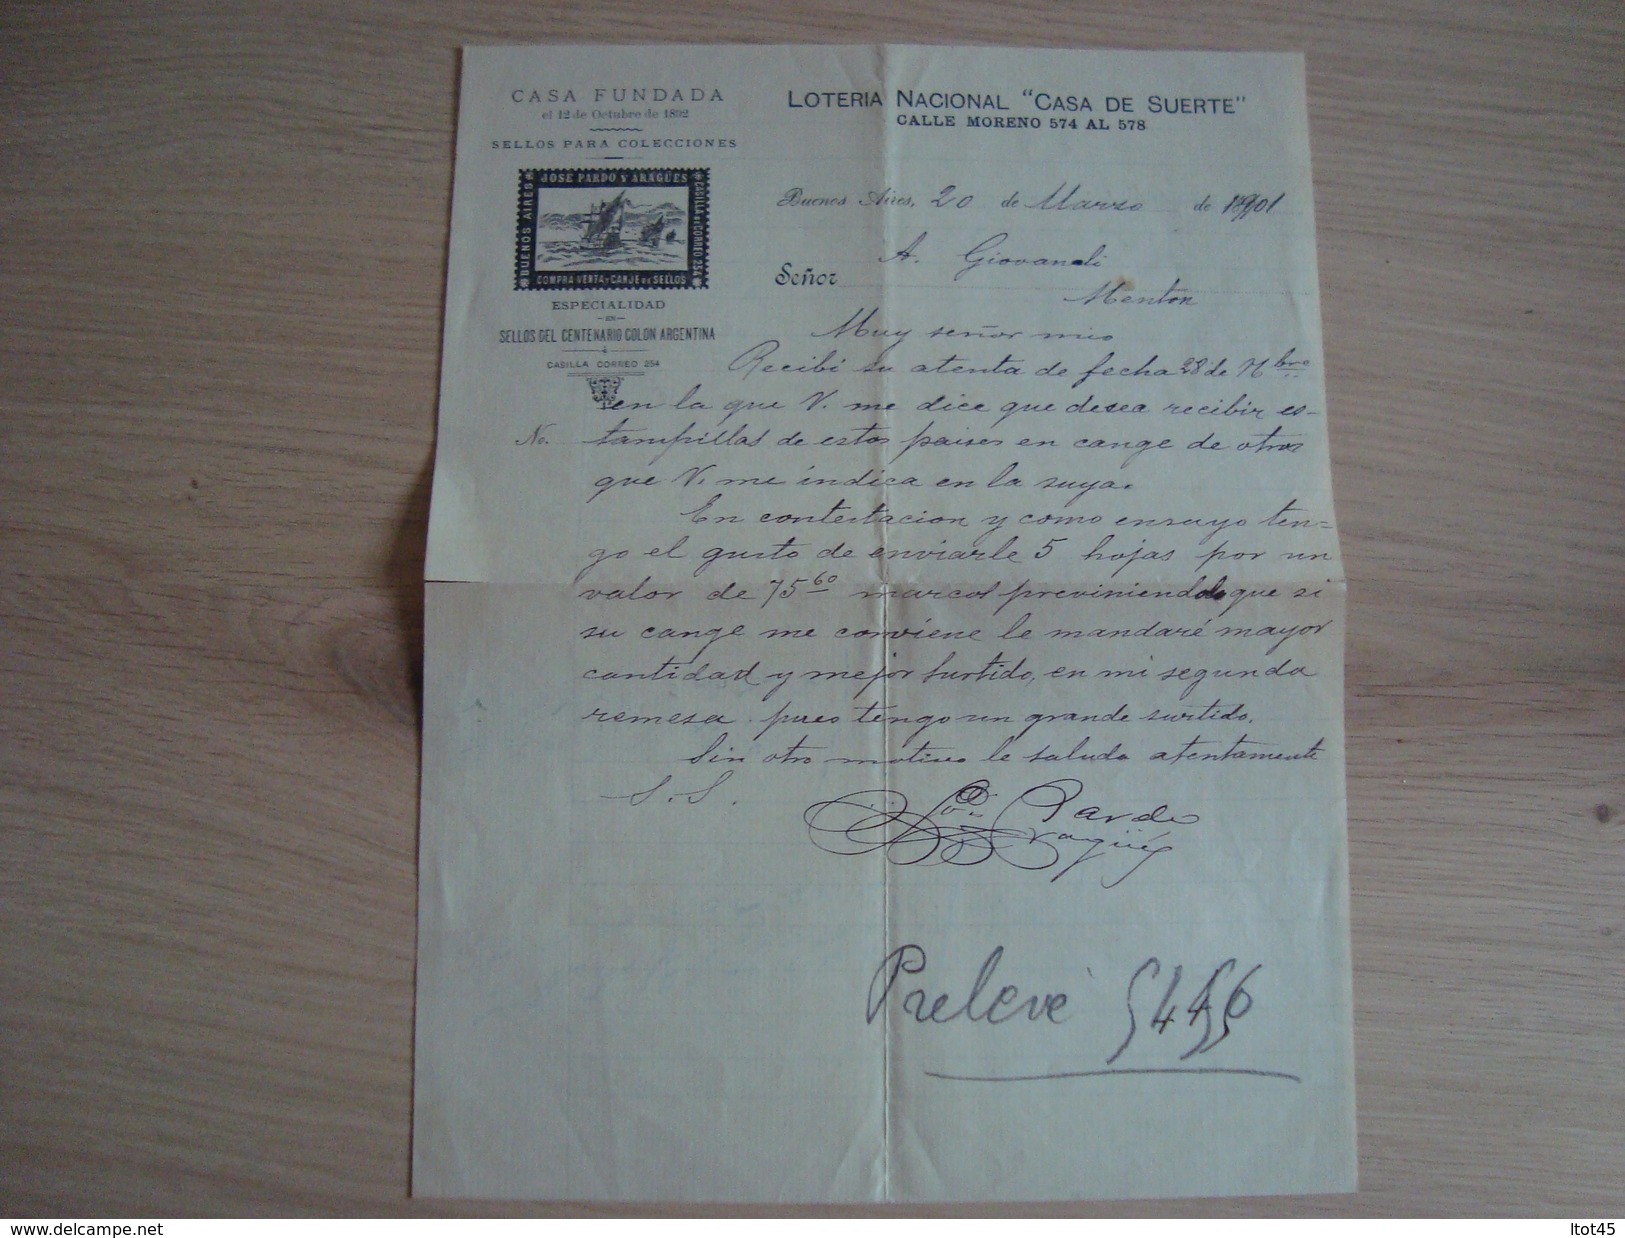 CASA FUNDADA
el 12 de Octubre de 1892
SELLOS PARA COLECCIONES
JOSE PARDO Y ARAGUES
BUENOS AIRES
CASILLA DE CORREO 254
COMPRA-VENTA Y CANJE DE SELLOS
ESPECIALIDAD
EN
SELLOS DEL CENTENARIO COLON ARGENTINA
CASILLA CORREO 254
No.
LOTERIA NACIONAL "CASA DE SUERTE"
CALLE MORENO 574 AL 578
Buenos Aires, 20 de Marzo de 1901
Señor A. Giovandi
Menton
Muy señor mio
Recibi su atenta de fecha 28 de Nbre
en la que V. me dice que desea recibir es-
tampillas de estos paises en cange de otros
que V. me indica en la suya.
En contestacion y como ensayo ten=
go el gusto de enviarle 5 hojas por un
valor de 75 60 marcos previniendole que si
su cange me conviene le mandaré mayor
cantidad y mejor surtido, en mi segunda
remesa. pues tengo un grande surtido.
Sin otro motivo le saluda atentamente
S. S.
José Pardo
Aragüés
Prelevé 54456
delcampe.net
ltot45